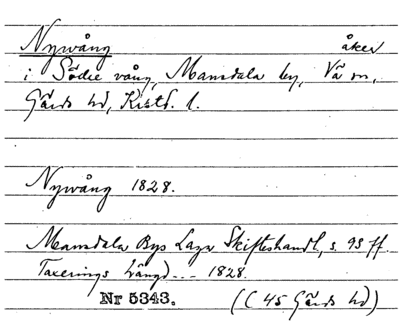 Nyvång åker
i Södre vång, Mansdala by, Vä sn,
Gärds hd, Krist. l.
Nyvång 1828.
Mansdala Bys Laga Skifteshandl, s. 93 ff.
Taxerings Längd... 1828.
Nr 5343. (C 45 Gärds hd)